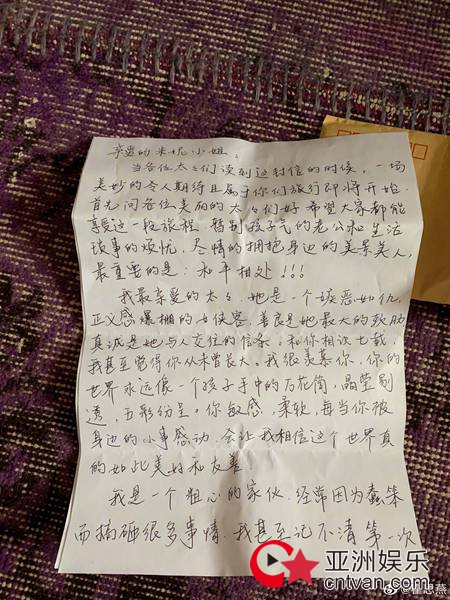 亲爱的米忧小姐：
当各位太太们读到这封信的时候，一场
美妙的令人期待且属于你们旅行即将开始
首先问各位美丽的太太们好希望大家都能
享受这一段旅程，暂别孩子气的老公和生活
琐事的烦忧，尽情的拥抱身边的美景美人，
最重要的是：和平相处！！！
我最亲爱的太太，她是一个嫉恶如仇
正义感爆棚的女侠客，善良是她最大的软肋
真诚是她与人交位的信条，和你相识七载，
我甚至觉得你从未曾长大。我很羡慕你，你的
世界永远像一个孩子手中的万花筒，晶莹剔
透，五彩纷呈。你敏感，柔软，每当你被
身边的小事感动，会让我相信这个世界真
的如此美好和友善！
我是一个粗心的家伙，经常因为蠢笨
而搞砸很多事情，我甚至记不清第一次
亚洲娱乐
cntvan.com
@霍思燕